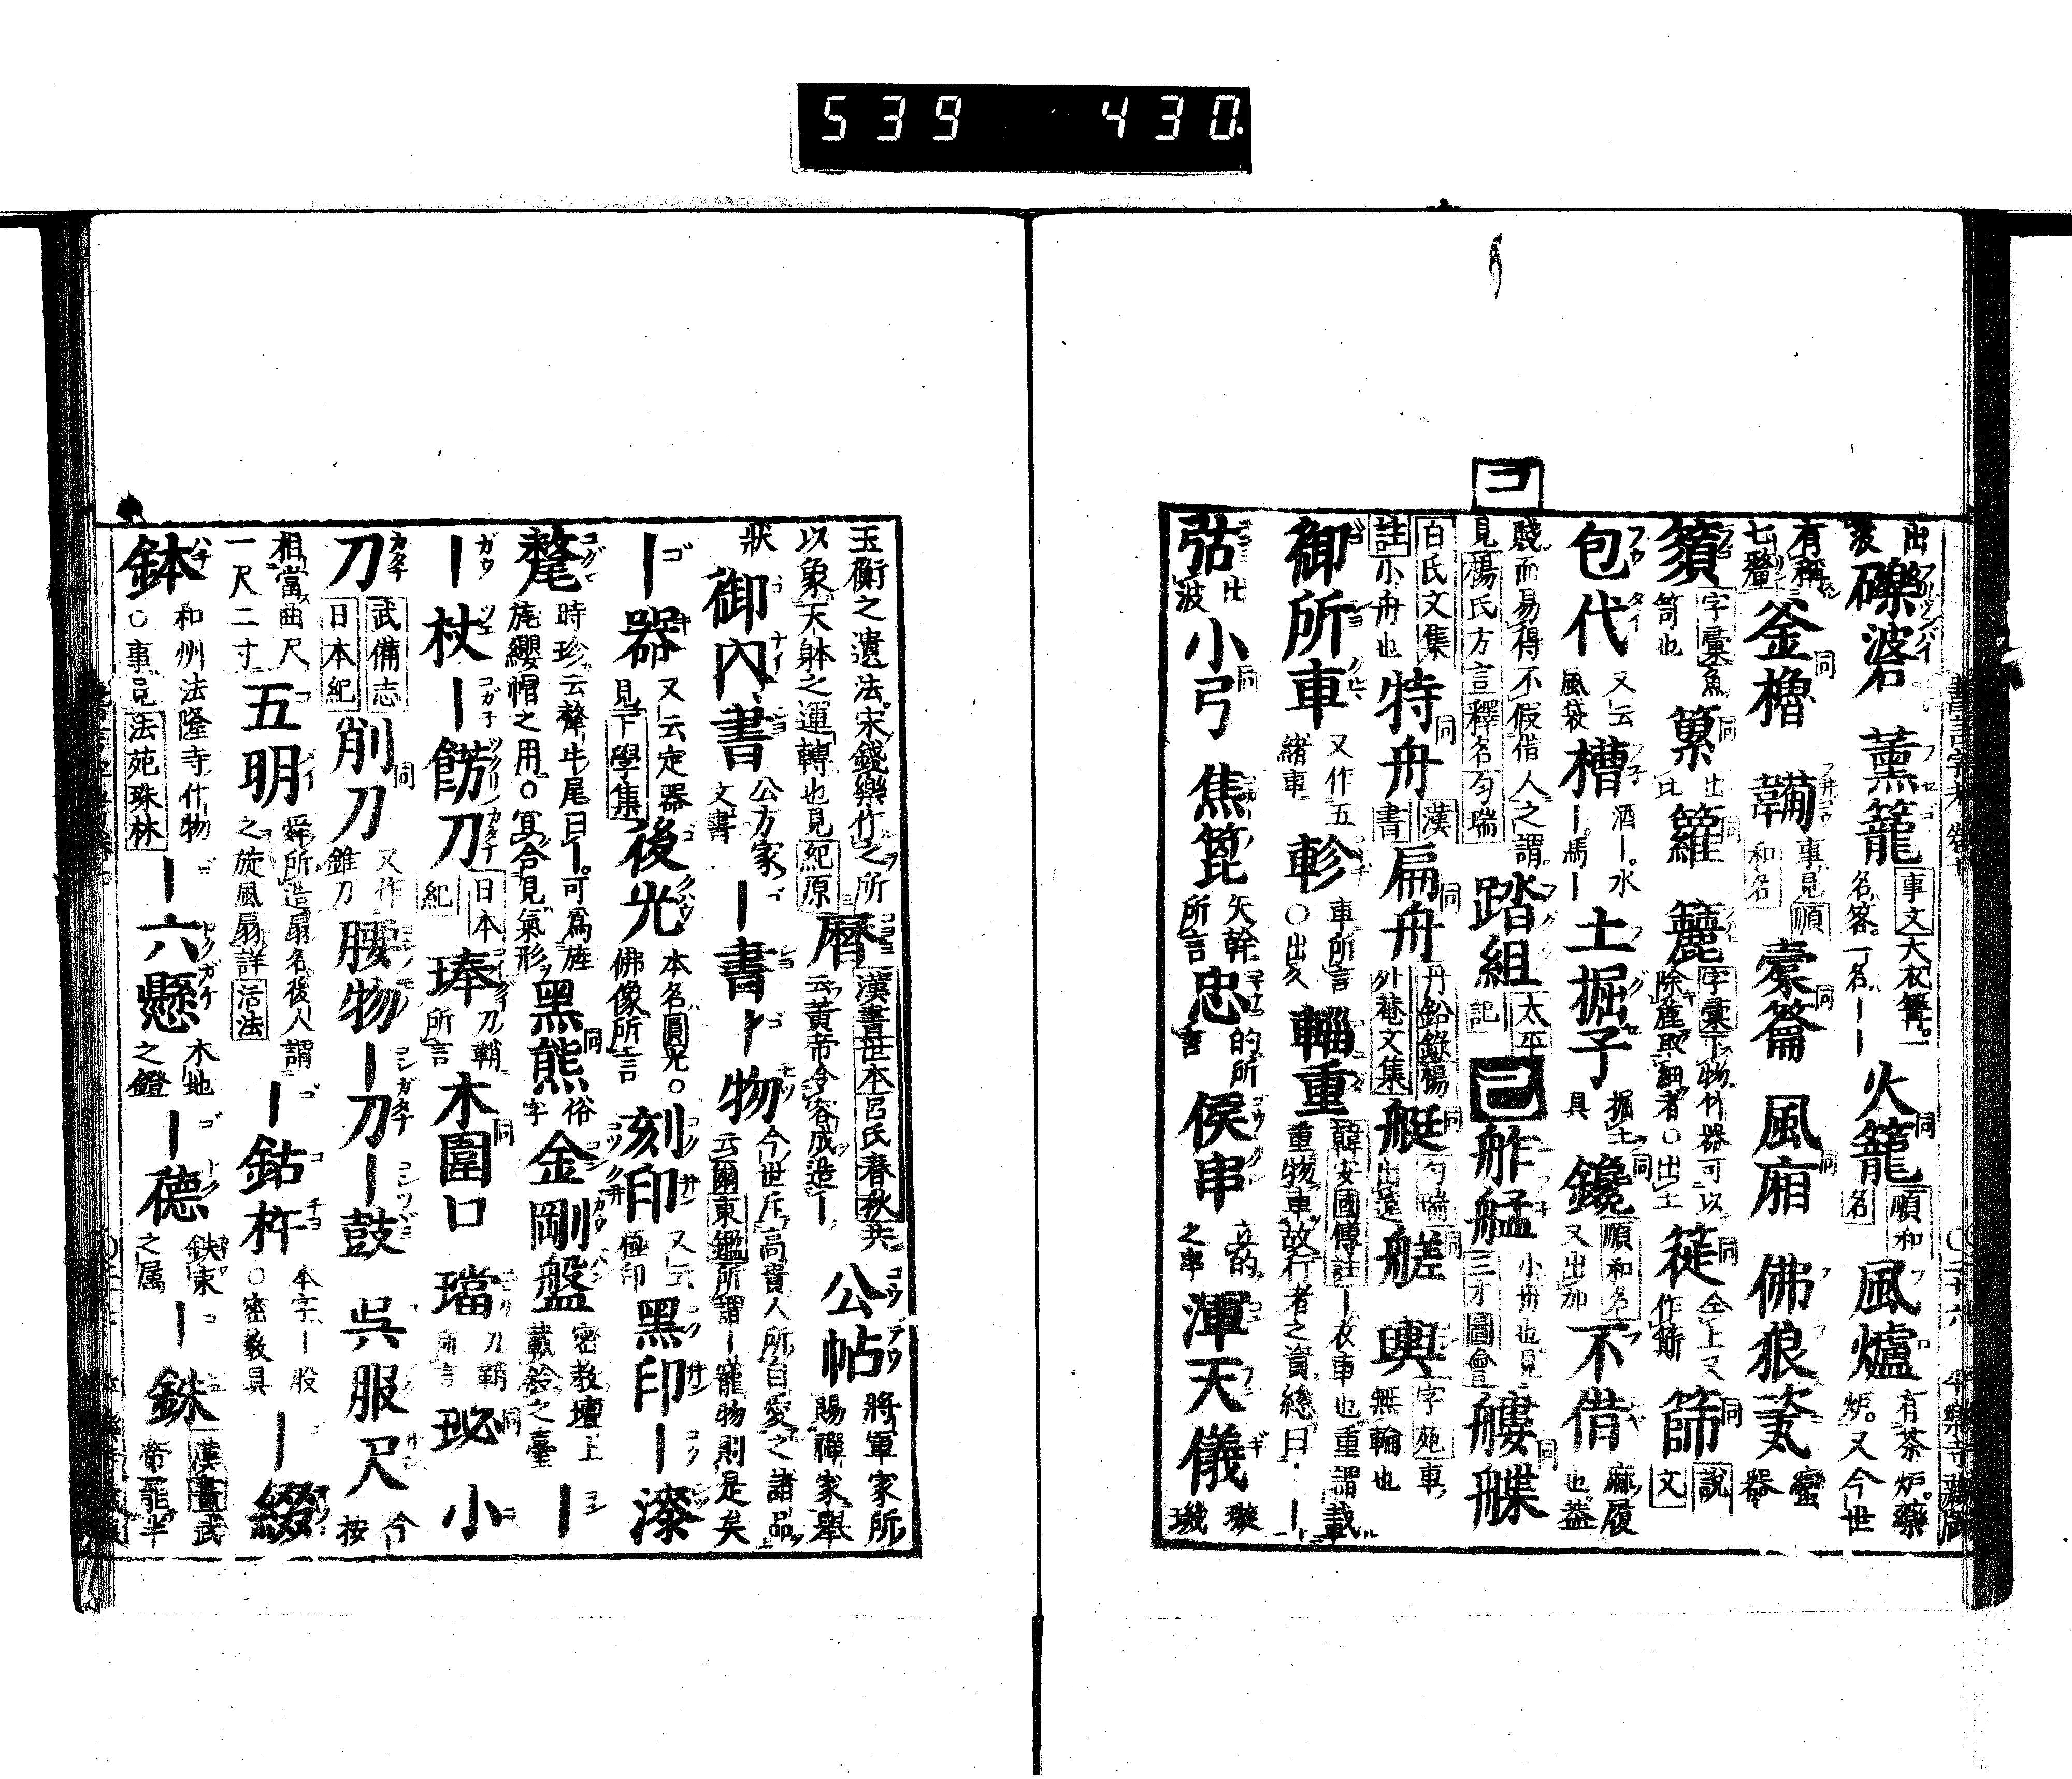 539 430
コ
出波 磔碆 薫籠 事文大衣篝。一名客。一名｜｜ 火籠 同 順和名 風爐 有茶炉。藥炉。又今世
有稱七釐 釜櫓 同 鞴 事見順和名 橐籥 同 風廂 同 佛狼 蠻器
籔 字彙魚笥也 出比 籮 同 簏 字彙下物竹器可以除麁取細者○出土 簁 同 仝上又作籭 篩 同 説文
包代 又云風袋 槽 酒｜。水｜。馬｜ 土掘子 掘土具 鑱 同 順和名又出加 不借 麻履也。蓋
賤而易得不假借人之謂。見楊氏方言釋名匀瑞 踏組 太平記 己 舴艋 小舟也見三才圖會 艛艓 同
白氏文集註小舟也 特舟 同 漢書 扁舟 同 丹鉛錄楊外菴文集 艇 同 匀瑞出遠 艖 同 輿 字苑車無輪也
御所車 又作五緒車 軫 車所言○出久 輜重 韓安國傳註｜衣車也重謂載重物車。故行者之資總曰｜｜
弶 出波 小弓 同 焦箆 矢幹所言 忠 的所言 侯串 立的之串 渾天儀 璇璣
玉衡之遺法。宋錢樂作之所以象天躰之運轉也見紀原 暦 漢書世本呂氏春秋共云黃帝令容成造｜ 公帖 將軍家所賜禪家舉
狀 御內書 公方家文書 ｜書 ｜物 今世斥高貴人所自愛之諸品云爾東鑑所謂｜寵物則是矣
｜器 又云定器見下學集 後光 本名圓光。佛像所言 刻印 又云極印 黑印 ｜漆
氂 時珍云犛牛尾曰｜。可爲旌旄纓帽之用。○冝合見氣形 黑熊 同 俗字 金剛盤 密教壇上載鈴之臺 ｜
｜杖 ｜餝刀 日本紀 琫 刀鞘所言 木圍口 同 璫 刀鞘所言 珌 同 小
刀 武備志日本紀 削刀 同 又作錐刀 腰物 ｜刀 ｜鼓 呉服尺 今按
相當曲尺一尺二寸 五明 舜所造扇名後人謂之旋風扇詳活法 ｜鈷杵 本字｜股○密教具 ｜綴
鉢 和州法隆寺什物○事見法苑珠林 ｜六懸 木地之鐙 ｜德 鉄束之属 ｜ 銖 漢書武帝罷半